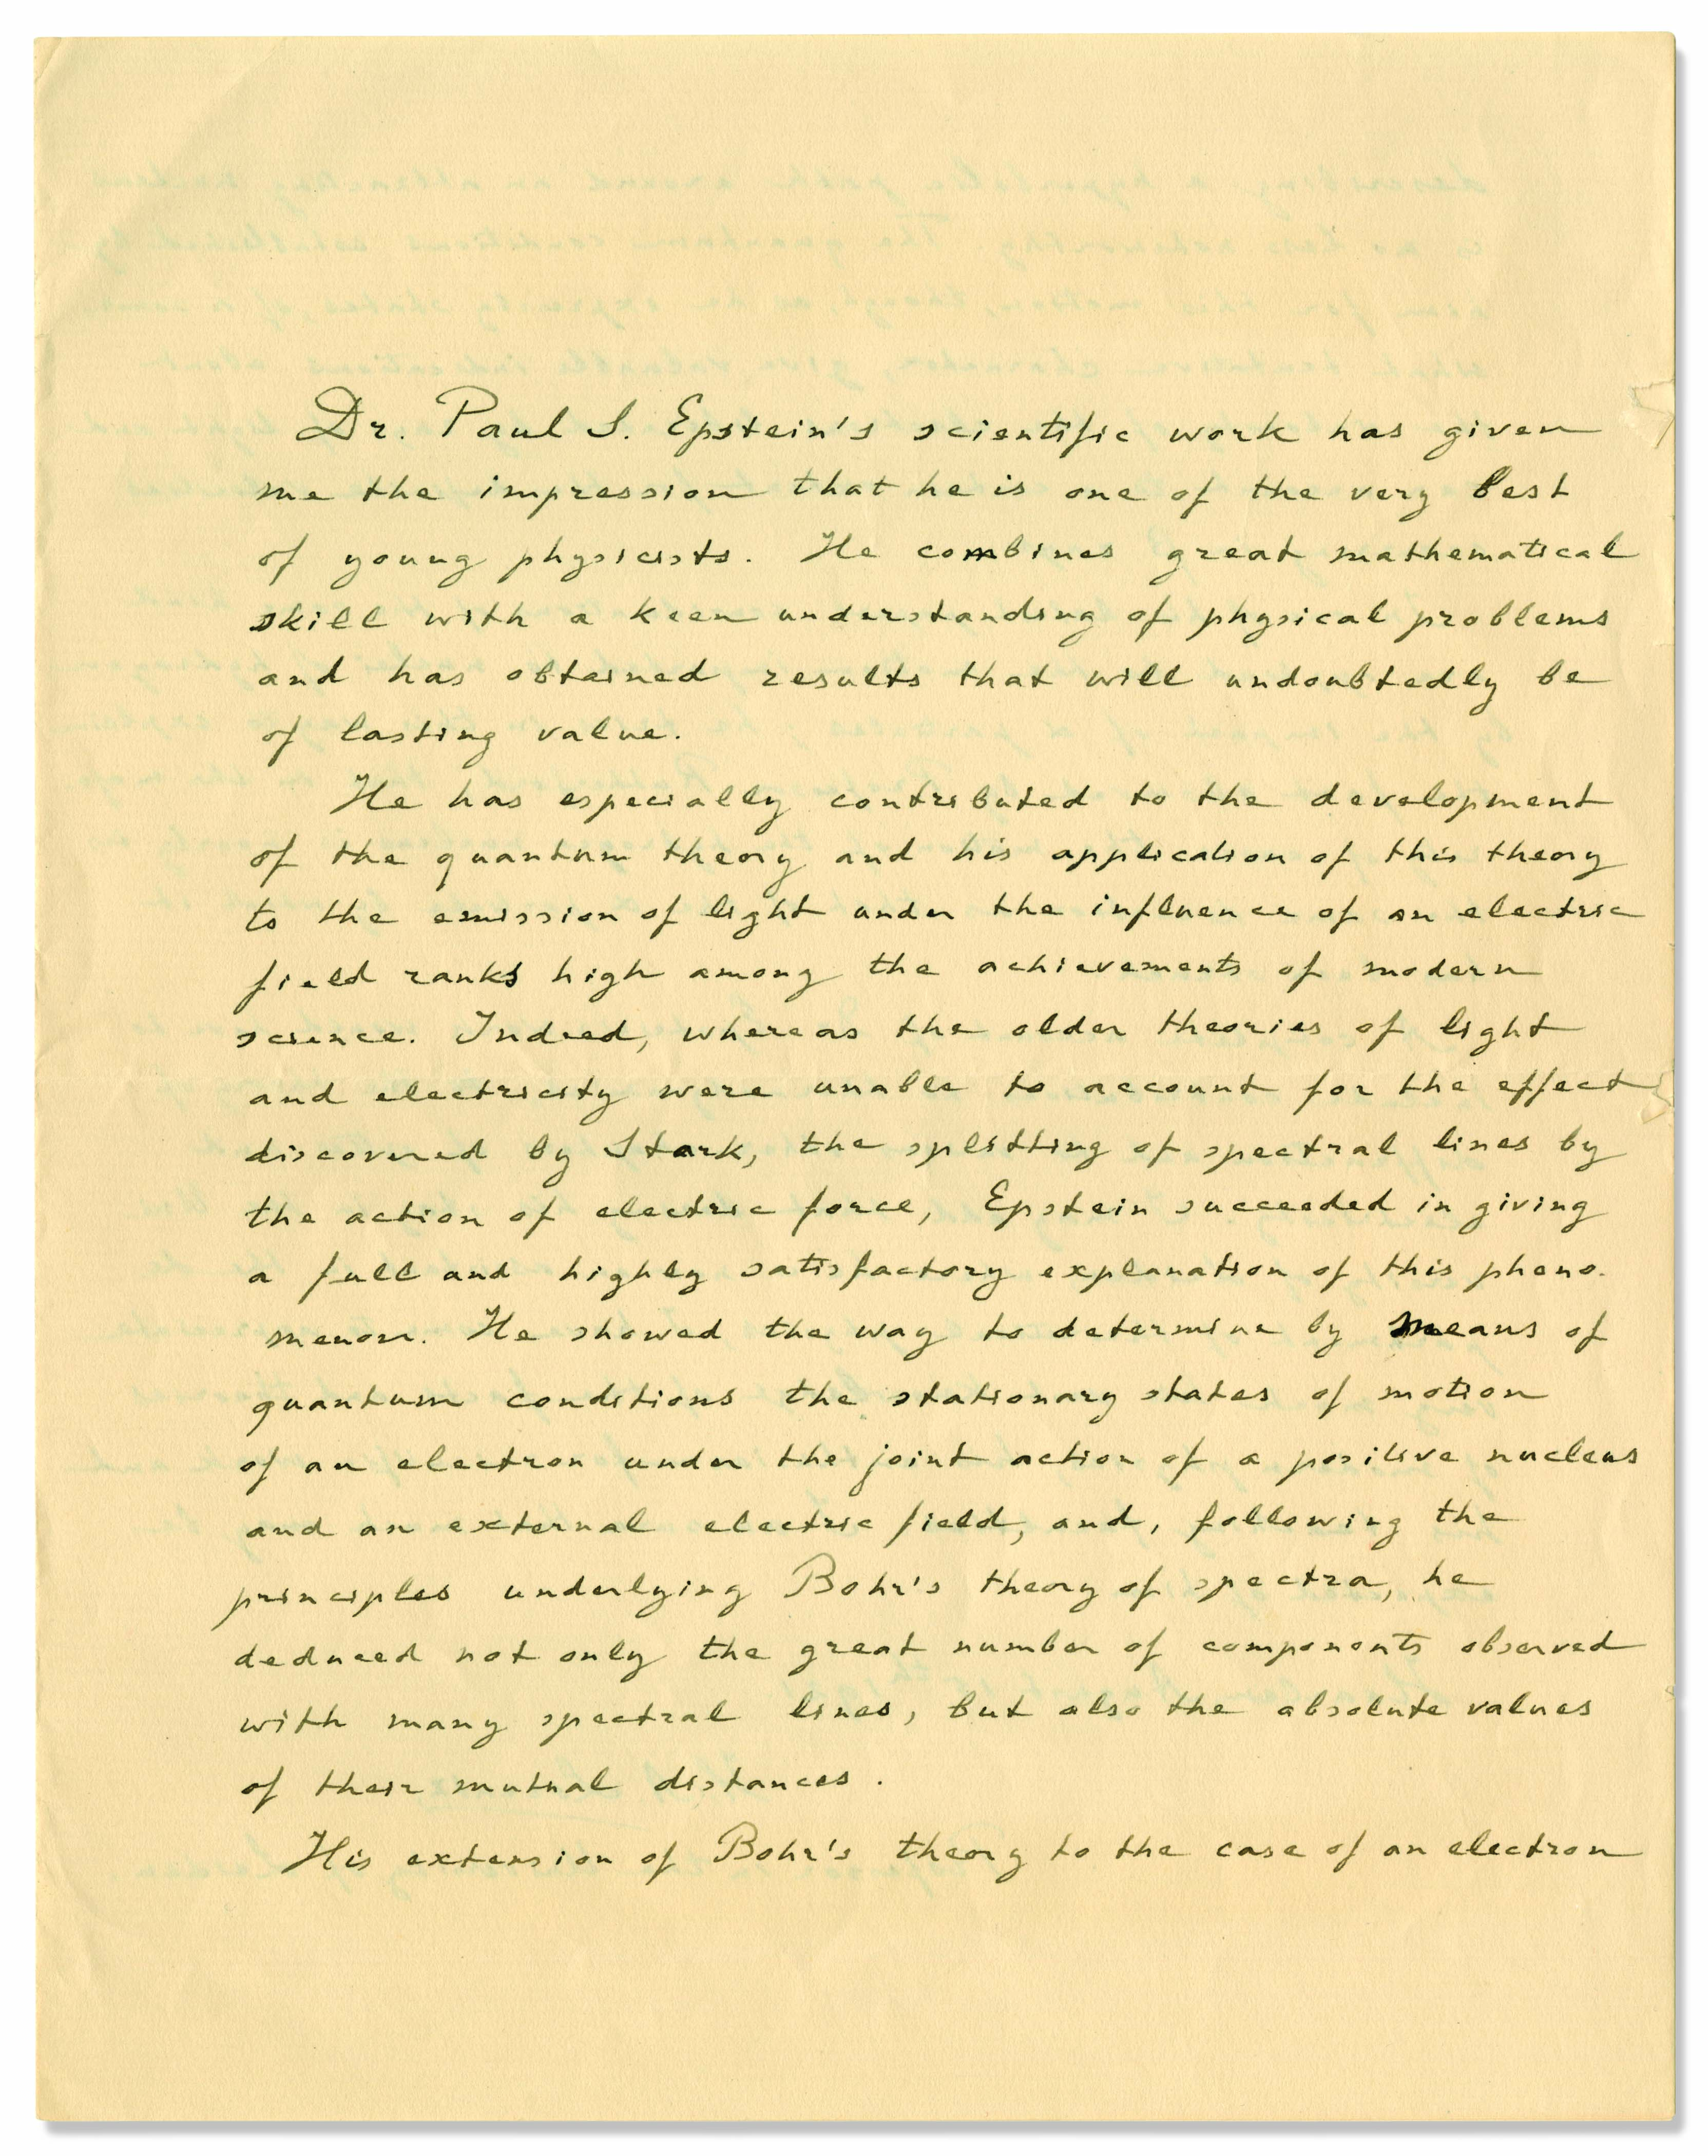 Dr. Paul S. Epstein's scientific work has given
me the impression that he is one of the very best
of young physicists. He combines great mathematical
skill with a keen understanding of physical problems
and has obtained results that will undoubtedly be
of lasting value.
He has especially contributed to the development
of the quantum theory and his application of this theory
to the emission of light under the influence of an electric
field ranks high among the achievements of modern
science. Indeed, whereas the older theories of light
and electricity were unable to account for the effect
discovered by Stark, the splitting of spectral lines by
the action of electric force, Epstein succeeded in giving
a full and highly satisfactory explanation of this pheno-
menon. He showed the way to determine by means of
quantum conditions the stationary states of motion
of an electron under the joint action of a positive nucleus
and an external electric field, and, following the
principles underlying Bohr's theory of spectra, he
deduced not only the great number of components observed
with many spectral lines, but also the absolute values
of their mutual distances.
His extension of Bohr's theory to the case of an electron